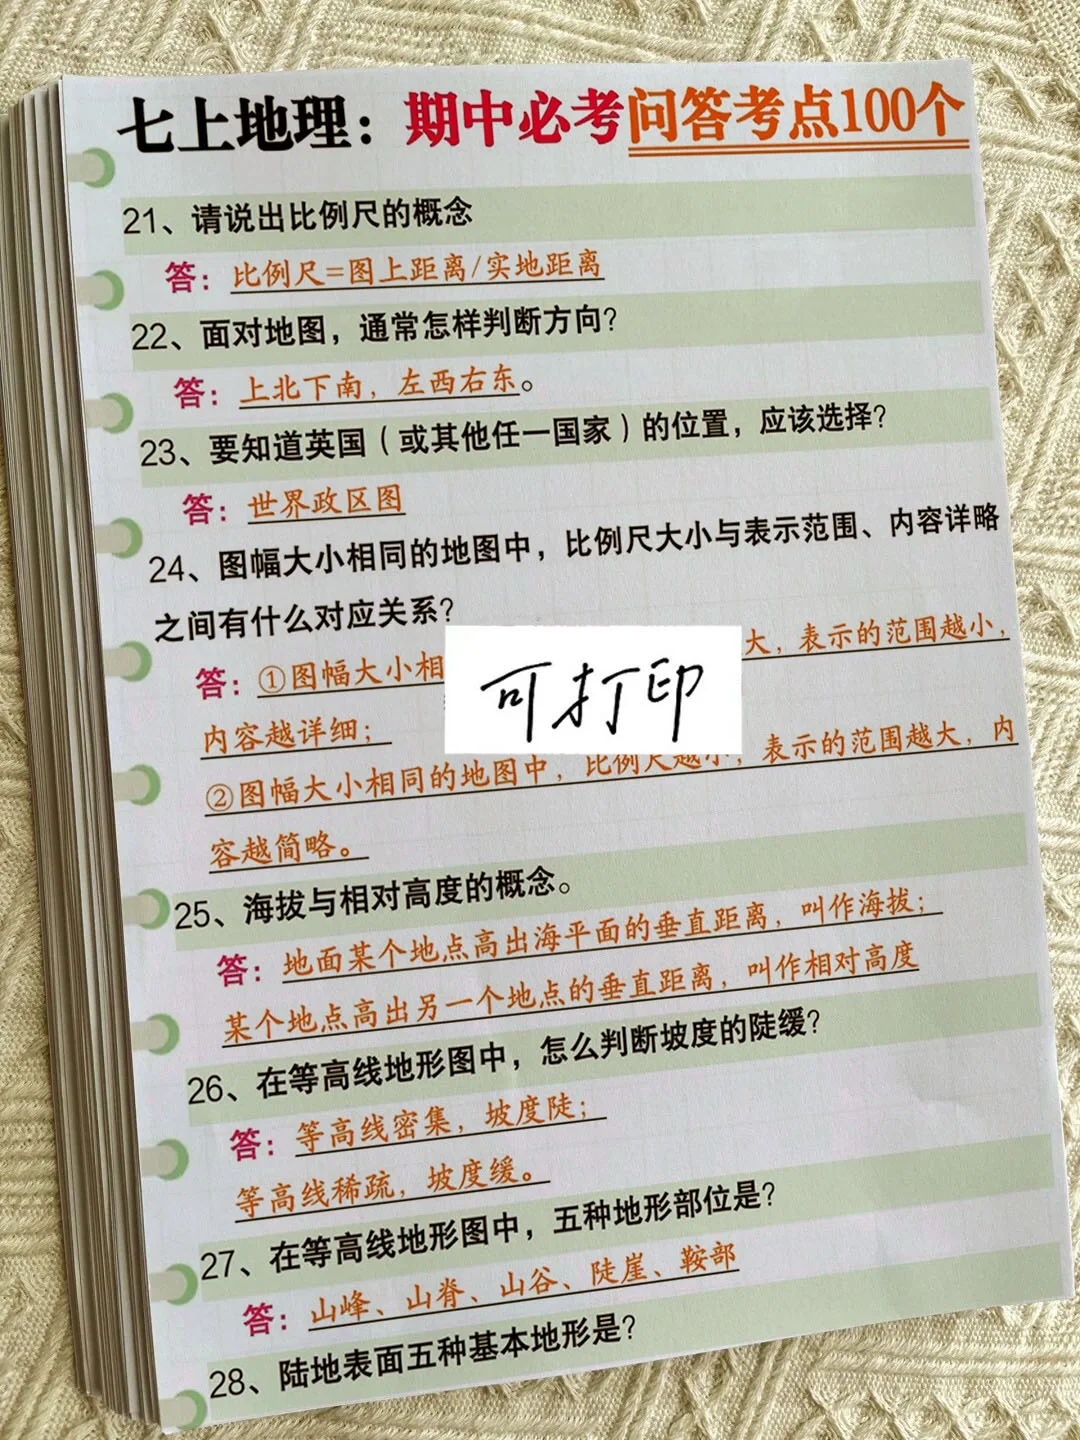 七上地理：期中必考问答考点100个
21、请说出比例尺的概念
答：比例尺=图上距离/实地距离
22、面对地图，通常怎样判断方向？
答：上北下南，左西右东。
23、要知道英国（或其他任一国家）的位置，应该选择？
答：世界政区图
24、图幅大小相同的地图中，比例尺大小与表示范围、内容详略
之间有什么对应关系？
答：①图幅大小相 大，表示的范围越小，
可打印
内容越详细；
②图幅大小相同的地图中，比例尺越小，表示的范围越大，内
容越简略。
25、海拔与相对高度的概念。
答：地面某个地点高出海平面的垂直距离，叫作海拔；
某个地点高出另一个地点的垂直距离，叫作相对高度
26、在等高线地形图中，怎么判断坡度的陡缓？
答：等高线密集，坡度陡；
等高线稀疏，坡度缓。
27、在等高线地形图中，五种地形部位是？
答：山峰、山脊、山谷、陡崖、鞍部
28、陆地表面五种基本地形是？